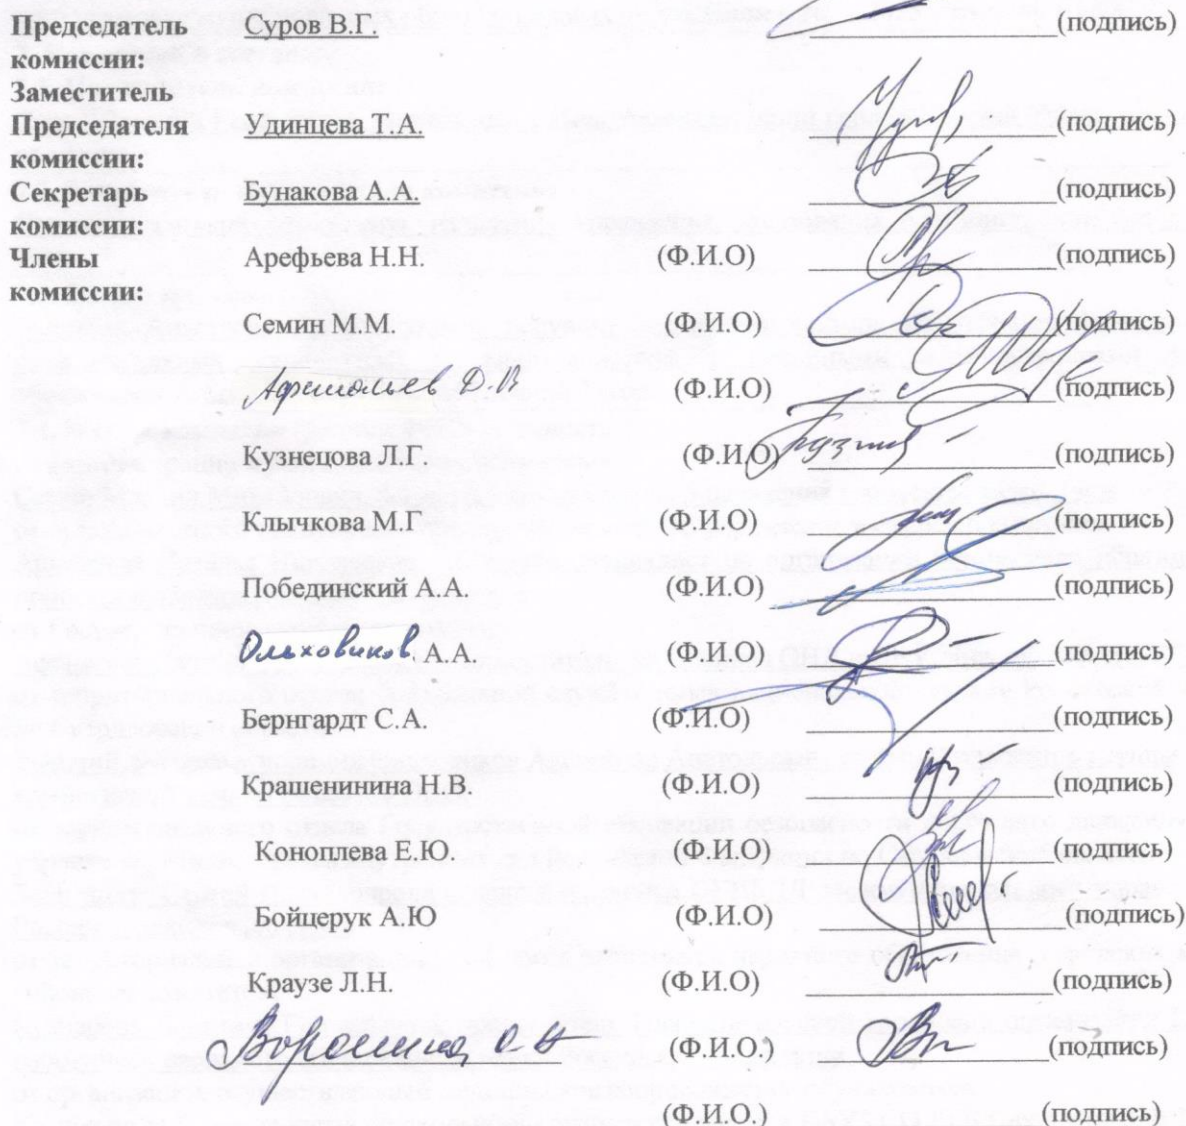 Председатель Суров В.Г. (подпись)
комиссии:
Заместитель
Председателя Удинцева Т.А. (подпись)
комиссии:
Секретарь Бунакова А.А. (подпись)
комиссии:
Члены Арефьева Н.Н. (Ф.И.О) (подпись)
комиссии:
Семин М.М. (Ф.И.О) (подпись)
Афанасьев Д.В (Ф.И.О) (подпись)
Кузнецова Л.Г. (Ф.И.О) (подпись)
Клычкова М.Г. (Ф.И.О) (подпись)
Побединский А.А. (Ф.И.О) (подпись)
Ольховиков А.А. (Ф.И.О) (подпись)
Бернгардт С.А. (Ф.И.О) (подпись)
Крашенинина Н.В. (Ф.И.О) (подпись)
Коноплева Е.Ю. (Ф.И.О) (подпись)
Бойцерук А.Ю (Ф.И.О) (подпись)
Краузе Л.Н. (Ф.И.О) (подпись)
(Ф.И.О.) (подпись)
(Ф.И.О.) (подпись)